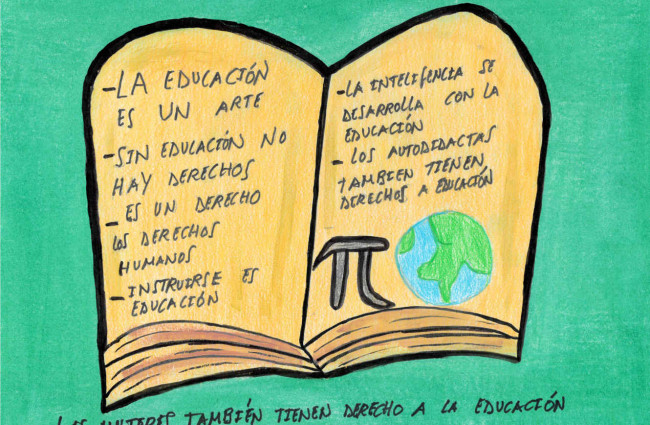 -LA EDUCACIÓN
ES UN ARTE
-SIN EDUCACIÓN NO
HAY DERECHOS
- ES UN DERECHO
LOS DERECHOS
HUMANOS
-INSTRUIRSE ES
EDUCACIÓN
-LA INTELIGENCIA SE
DESARROLLA CON LA
EDUCACIÓN
- LOS AUTODIDACTAS
TAMBIEN TIENEN
DERECHOS A EDUCACIÓN
π
LAS MUJERES TAMBIÉN TIENEN DERECHO A LA EDUCACIÓN